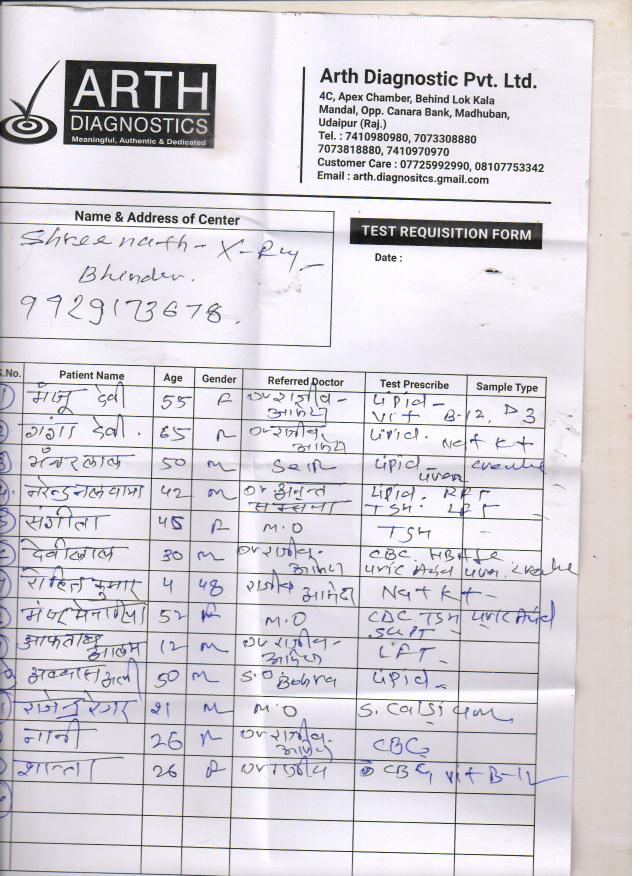 ARTH
DIAGNOSTICS
Meaningful, Authentic & Dedicated
Arth Diagnostic Pvt. Ltd.
4C, Apex Chamber, Behind Lok Kala
Mandal, Opp. Canara Bank, Madhuban,
Udaipur (Raj.)
Tel. : 7410980980, 7073308880
7073818880, 7410970970
Customer Care : 07725992990, 08107753342
Email : arth.diagnositcs.gmail.com
Name & Address of Center
Shreenath - X-Ray
Bhinder.
9929173678.
TEST REQUISITION FORM
Date :
S.No. Patient Name Age Gender Referred Doctor Test Prescribe Sample Type
मंजू देवी 55 F Dr राजीव- आमेटा Lipid - Vit B-12, D3
गंगा देवी. 65 Dr राजीव- आमेटा Lipid. Na+ K+
भंवरलाल 50 M Self Lipid
42 M Dr अनन्त सक्सेना Lipid. RFT TSH. LFT
संगीता 45 F M.O TSH
देवीलाल 30 M Dr राजीव- आमेटा CBC Uric Acid
रोहित कुमार 4 48 राजीव आमेटा Na+ K+ -
52 F M.O CBC TSH Uric Acid SGPT -
आफताब आलम 12 M Dr राजीव- आमेटा LFT -
अब्बास अली 50 M S.O Bohra Lipid -
राजेन्द्र रेगर 21 M M.O S. Calsium
नानी 26 F Dr राजीव- आमेटा CBC
शान्ता 26 F Dr राजीव CBC, Vit B-12